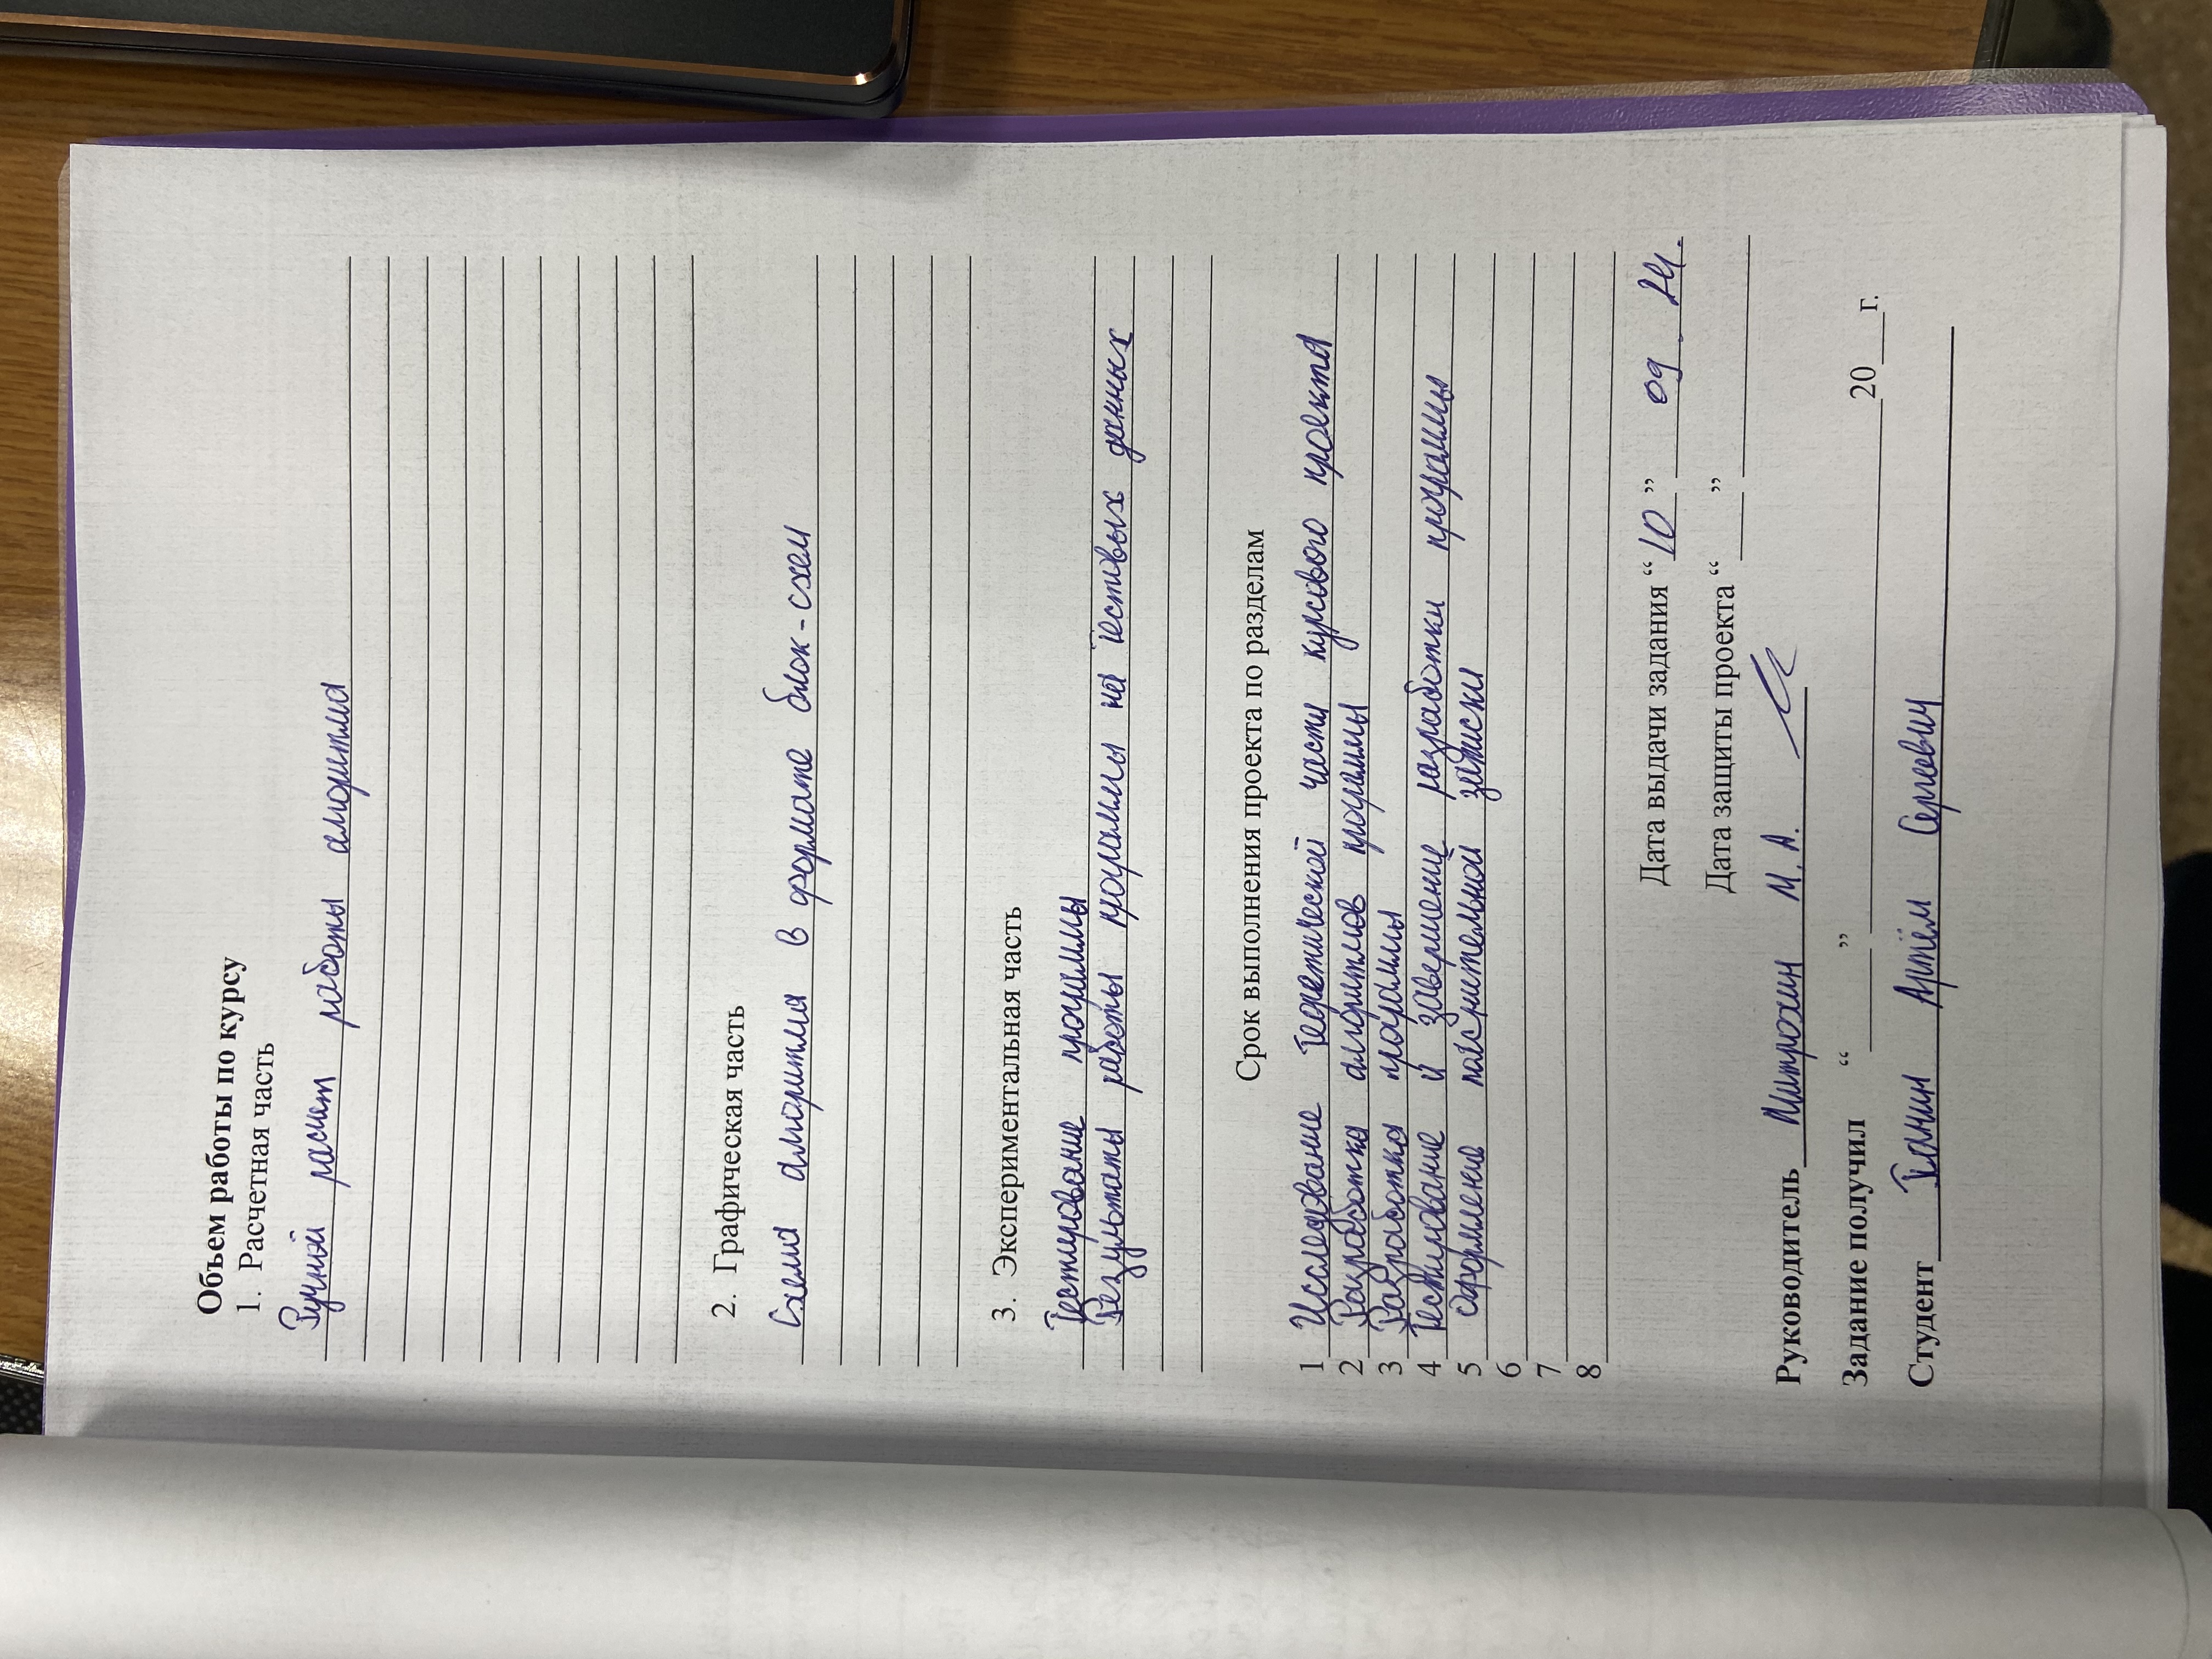 Объем работы по курсу
1. Расчетная часть
Ручной расчет работы алгоритма
2. Графическая часть
Схема алгоритма в формате блок-схем
3. Экспериментальная часть
Тестирование программы
Результаты работы программы на тестовых данных
Срок выполнения проекта по разделам
1 Исследование теоретической части курсового проекта
2 Разработка алгоритмов программы
3 Разработка программы
4 Тестирование и завершение разработки программы
5 Оформление пояснительной записки
6
7
8
Дата выдачи задания “10” 09. 24.
Дата защиты проекта “___”
Руководитель Митрохин М. А.
Задание получил “___” 20___г.
Студент Панин Артём Сергеевич